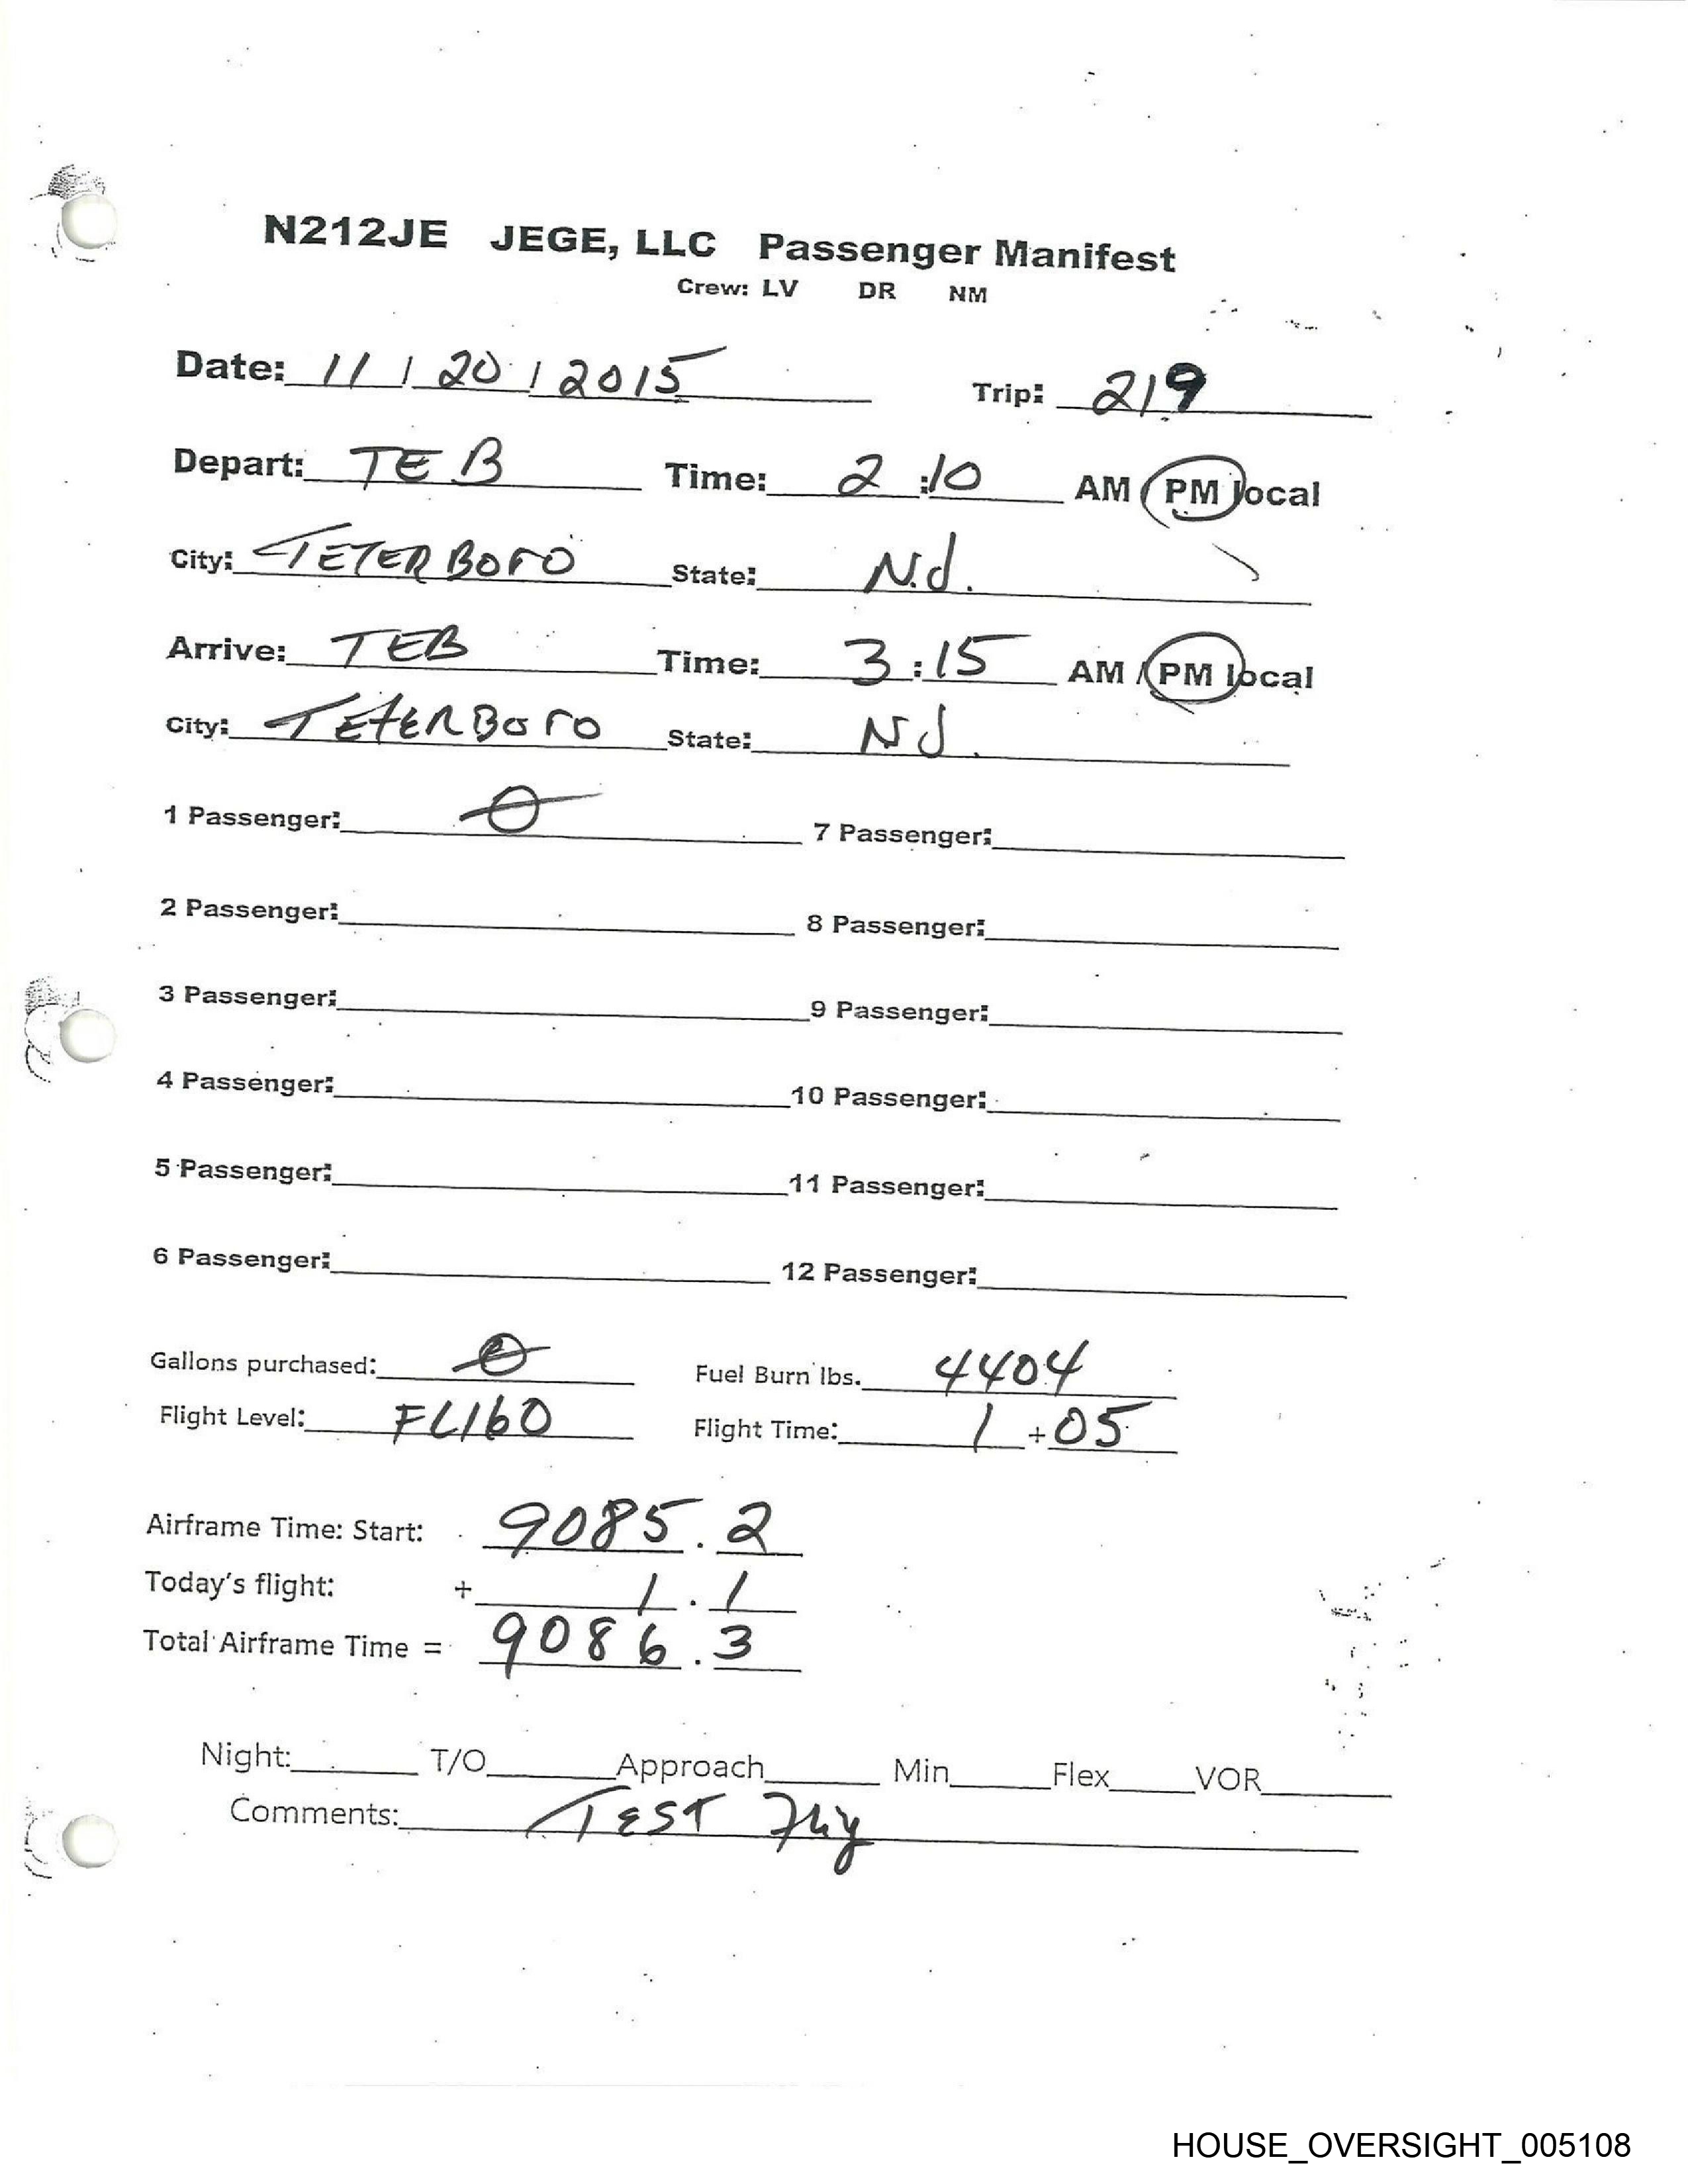 N212JE JEGE, LLC Passenger Manifest
Crew: LV DR NM
Date: 11 / 20 / 2015 Trip: 219
Depart: TEB Time: 2:10 AM / PM local
City: TETERBORO State: N.J.
Arrive: TEB Time: 3:15 AM / PM local
City: TETERBORO State: NJ.
1 Passenger: 0 7 Passenger:
2 Passenger: 8 Passenger:
3 Passenger: 9 Passenger:
4 Passenger: 10 Passenger:
5 Passenger: 11 Passenger:
6 Passenger: 12 Passenger:
Gallons purchased: 0 Fuel Burn lbs. 4404
Flight Level: FL160 Flight Time: 1 + 05
Airframe Time: Start: 9085.2
Today's flight: + 1.1
Total Airframe Time = 9086.3
Night: T/O Approach Min Flex VOR
Comments: TEST
HOUSE_OVERSIGHT_005108